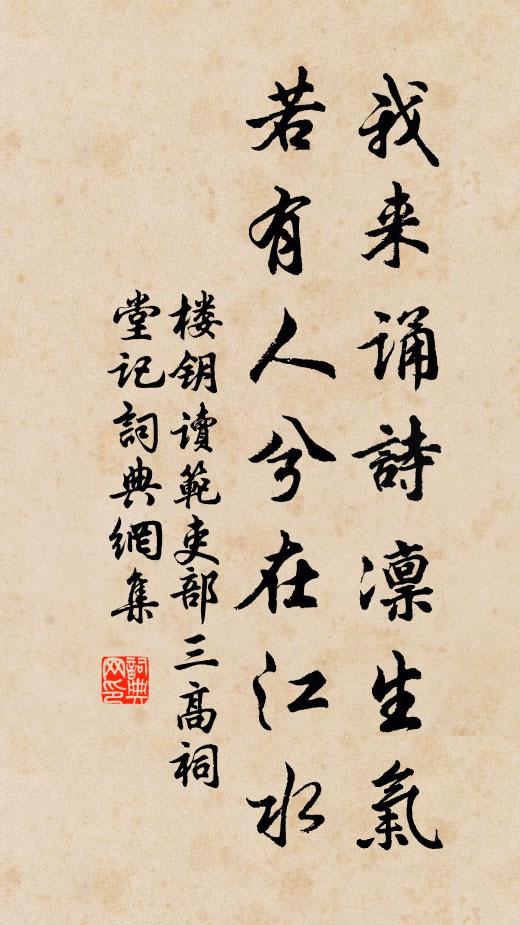 我来诵詩凛生氣
若有人兮在江水
楼钥讀範吏部三高祠
堂记詞典網集
詞典
网印